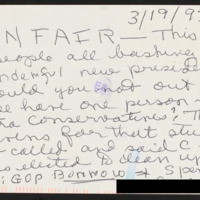 3/19/9
N FAIR — This
people all bashing
nderful new presid
ould you not out
ve have one person
ra Conservatives? Th
rens for that stu
called and said C-
o elected to clean up
: GOP BORROW & Spen